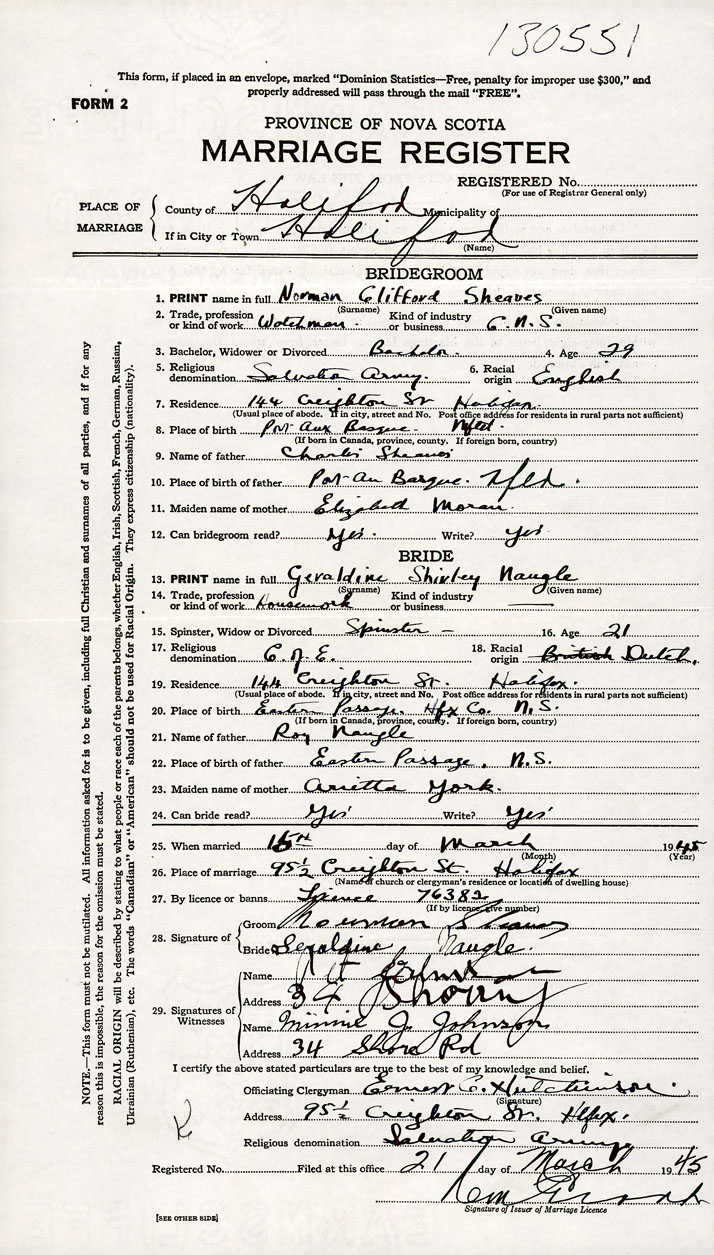 130551
This form, if placed in an envelope, marked "Dominion Statistics—Free, penalty for improper use $300," and
properly addressed will pass through the mail "FREE".
FORM 2
PROVINCE OF NOVA SCOTIA
MARRIAGE REGISTER
REGISTERED No.
(For use of Registrar General only)
PLACE OF MARRIAGE
County of Halifax Municipality of
If in City or Town Halifax
(Name)
BRIDEGROOM
1. PRINT name in full Norman Clifford Sheaves
(Surname) (Given name)
2. Trade, profession or kind of work Watchman. Kind of industry or business C.N.S.
3. Bachelor, Widower or Divorced Bachelor. 4. Age 29
5. Religious denomination Salvation Army. 6. Racial origin English
7. Residence 144 Creighton St Halifax.
(Usual place of abode. If in city, street and No. Post office address for residents in rural parts not sufficient)
8. Place of birth Port-Aux Basque. Nfld.
(If born in Canada, province, county. If foreign born, country)
9. Name of father Charles Sheaves
10. Place of birth of father Port-au Basque. Nfld.
11. Maiden name of mother Elizabeth Moran.
12. Can bridegroom read? Yes. Write? Yes
BRIDE
13. PRINT name in full Geraldine Shirley Naugle
(Surname) (Given name)
14. Trade, profession or kind of work Housework Kind of industry or business —
15. Spinster, Widow or Divorced Spinster – 16. Age 21
17. Religious denomination C. of E. 18. Racial origin British Dutch.
19. Residence 144 Creighton St. Halifax.
(Usual place of abode. If in city, street and No. Post office address for residents in rural parts not sufficient)
20. Place of birth Eastern Passage. Hfx Co. N.S.
(If born in Canada, province, county. If foreign born, country)
21. Name of father Roy Naugle
22. Place of birth of father Eastern Passage. N.S.
23. Maiden name of mother Arietta York.
24. Can bride read? Yes Write? Yes
25. When married day of March 1945
(Month) (Year)
26. Place of marriage 95½ Creighton St. Halifax
(Name of church or clergyman's residence or location of dwelling house)
27. By licence or banns Licence 76382
(If by licence, give number)
28. Signature of Groom Norman Sheaves
Bride Geraldine Naugle.
29. Signatures of Witnesses
Name
Address 34
Name Minnie J. Johnson
Address 34 Shore Rd
I certify the above stated particulars are true to the best of my knowledge and belief.
Officiating Clergyman Ernest C. Hutchinson.
(Signature)
Address 95½ Creighton St. Hfx.
Religious denomination Salvation Army
Registered No. Filed at this office 21 day of March 1945
Signature of Issuer of Marriage Licence
[SEE OTHER SIDE]
NOTE.—This form must not be mutilated. All information asked for is to be given, including full Christian and surnames of all parties, and if for any
reason this is impossible, the reason for the omission must be stated.
RACIAL ORIGIN will be described by stating to what people or race each of the parents belongs, whether English, Irish, Scottish, French, German, Russian,
Ukrainian (Ruthenian), etc. The words "Canadian" or "American" should not be used for Racial Origin. They express citizenship (nationality).